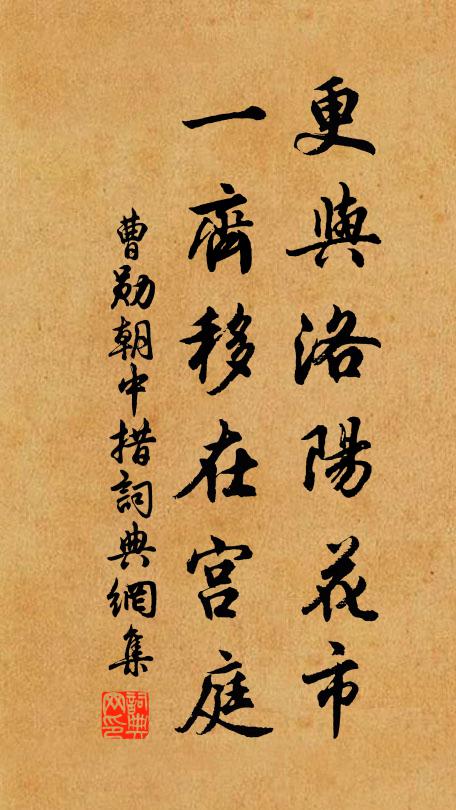 更與洛陽花市
一齊移在宮庭
曹勛朝中措詞典網集
詞典
网印